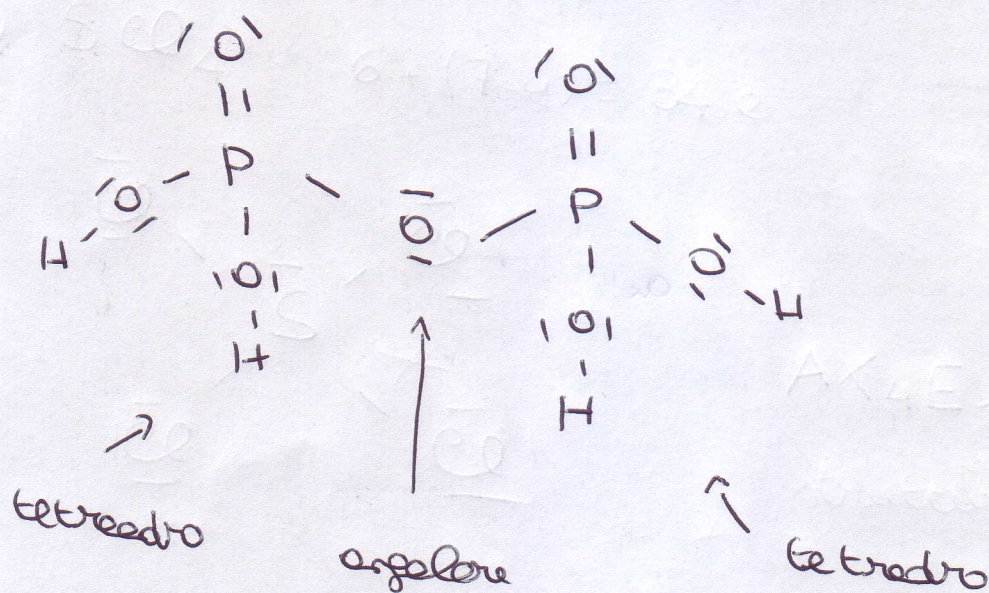 O
O
||
||
P
O
P
O
O
H
O
O
H
H
O
H
tetraedro
angolare
tetredro